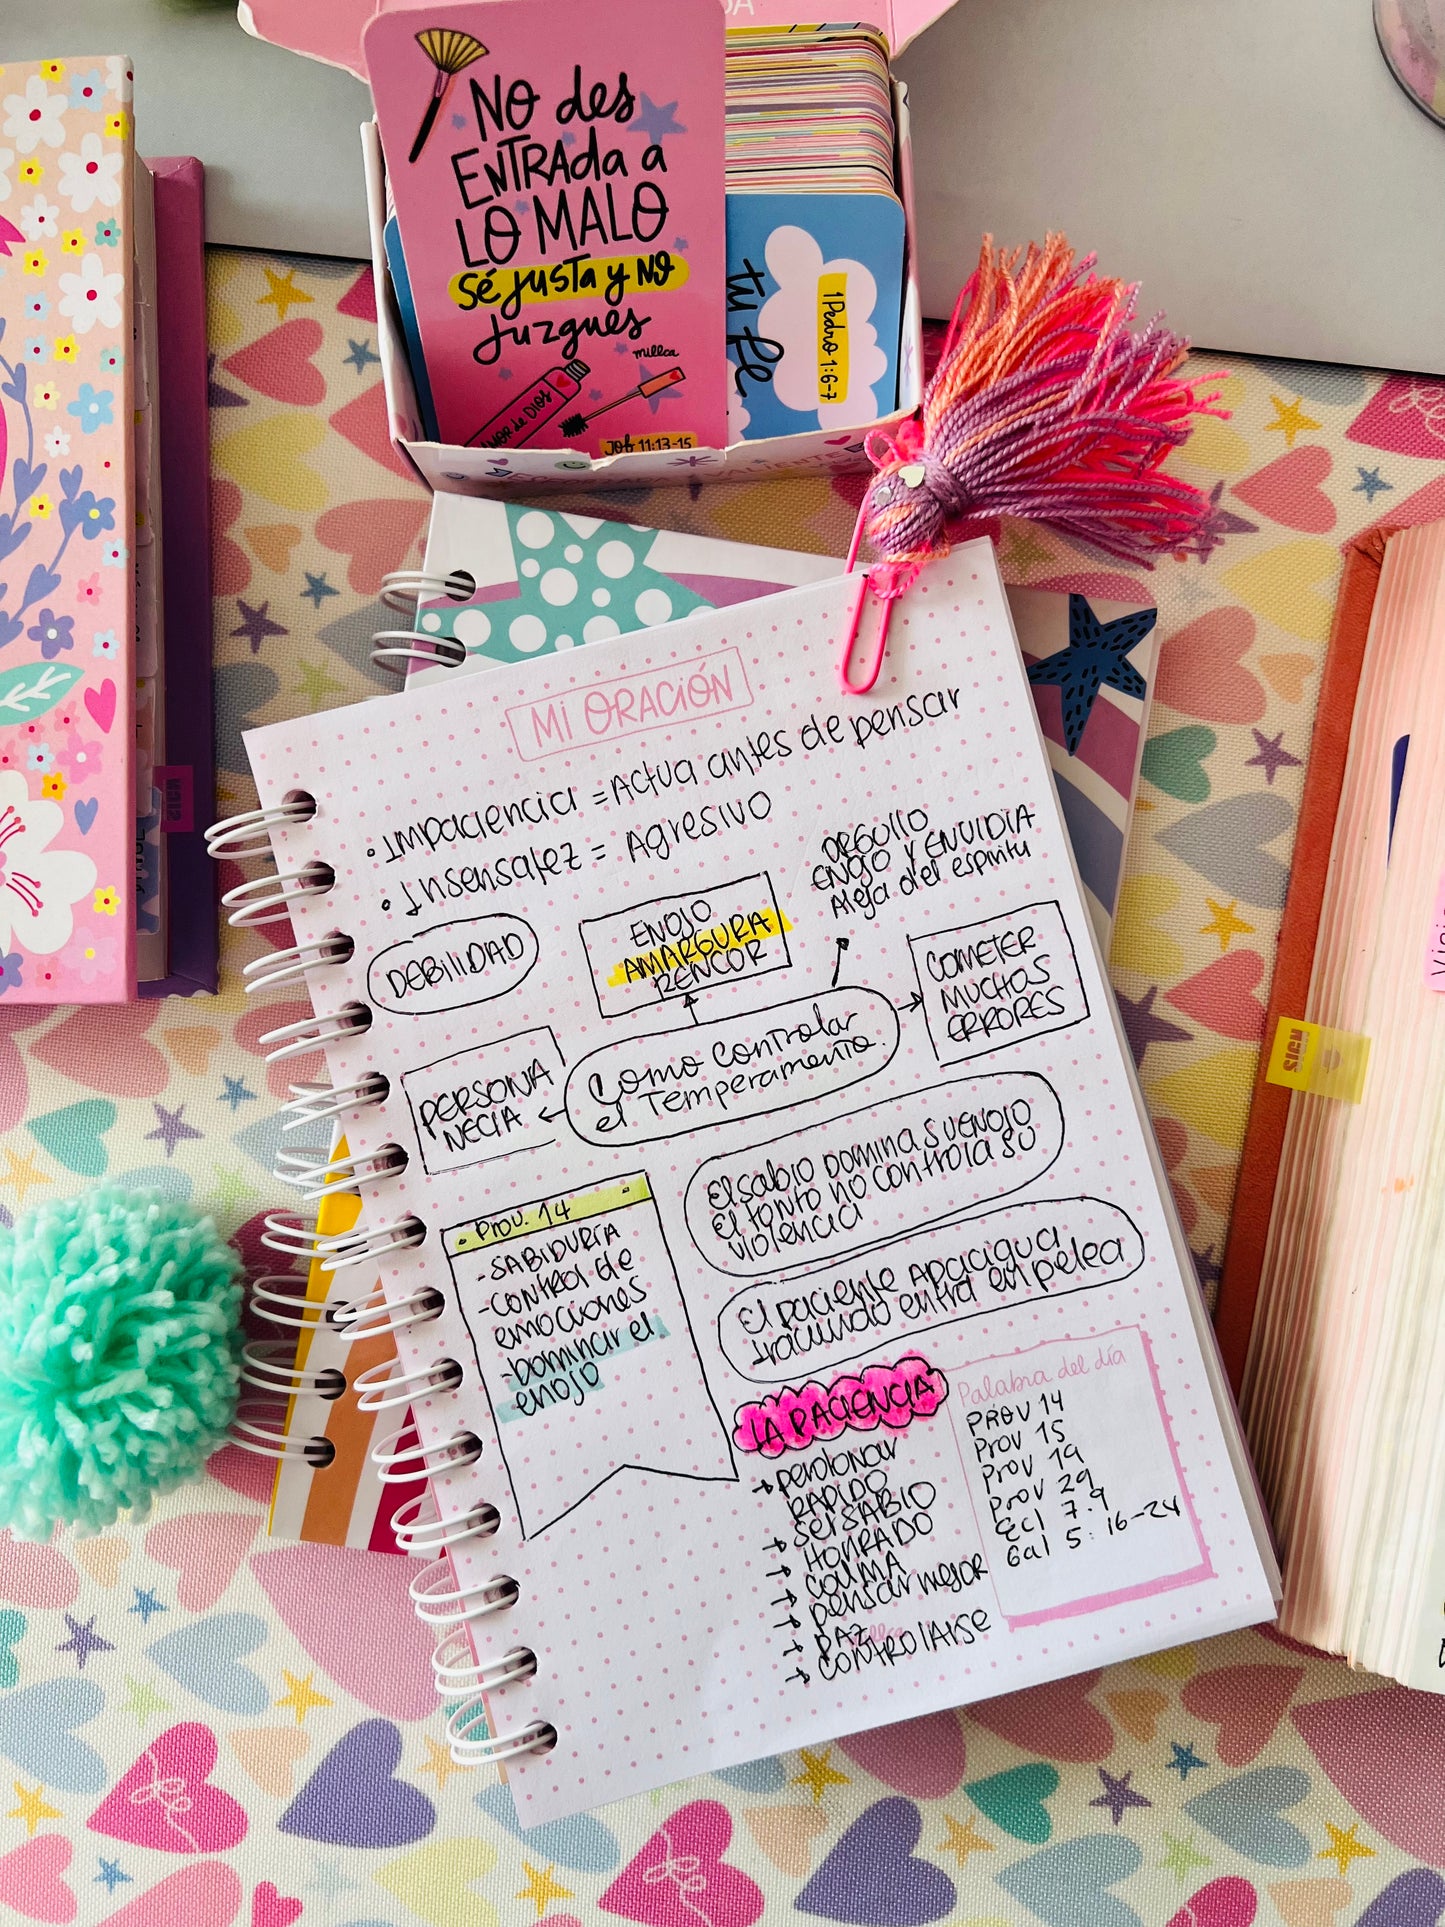 NO des
ENTRAda a
LO MALO
sé justa y NO
juzgues
millca
AMOR de DIOS
JOB 11:13-15
tu fe
1 Pedro 1:6-7
SIGN
SIGN
MI ORACIÓN
• Impaciencia = Actua antes de pensar
• Insensatez = Agresivo
ORGULLO
ENOJO Y ENVIDIA
Aleja del espiritu
DEBILIDAD
ENOJO
AMARGURA
RENCOR
COMETER
MUCHOS
ERRORES
PERSONA
NECIA
Como controlar
el Temperamento.
El sabio DOMINA SU ENOJO
El tonto no controla su
violencia
El paciente Apacigua
Iracundo entra en pelea
• Prov. 14
- SABIDURÍA
- CONTROL de
emociones
- Dominar el
enojo
LA PACIENCIA
perdonar
RAPIDO
Ser SABIO
HONRADO
CALMA
pensar mejor
PAZ
CONTROLARSE
Palabra del día
PROV 14
Prov 15
Prov 19
Prov 29
Ecl 7.9
Gal 5: 16-24